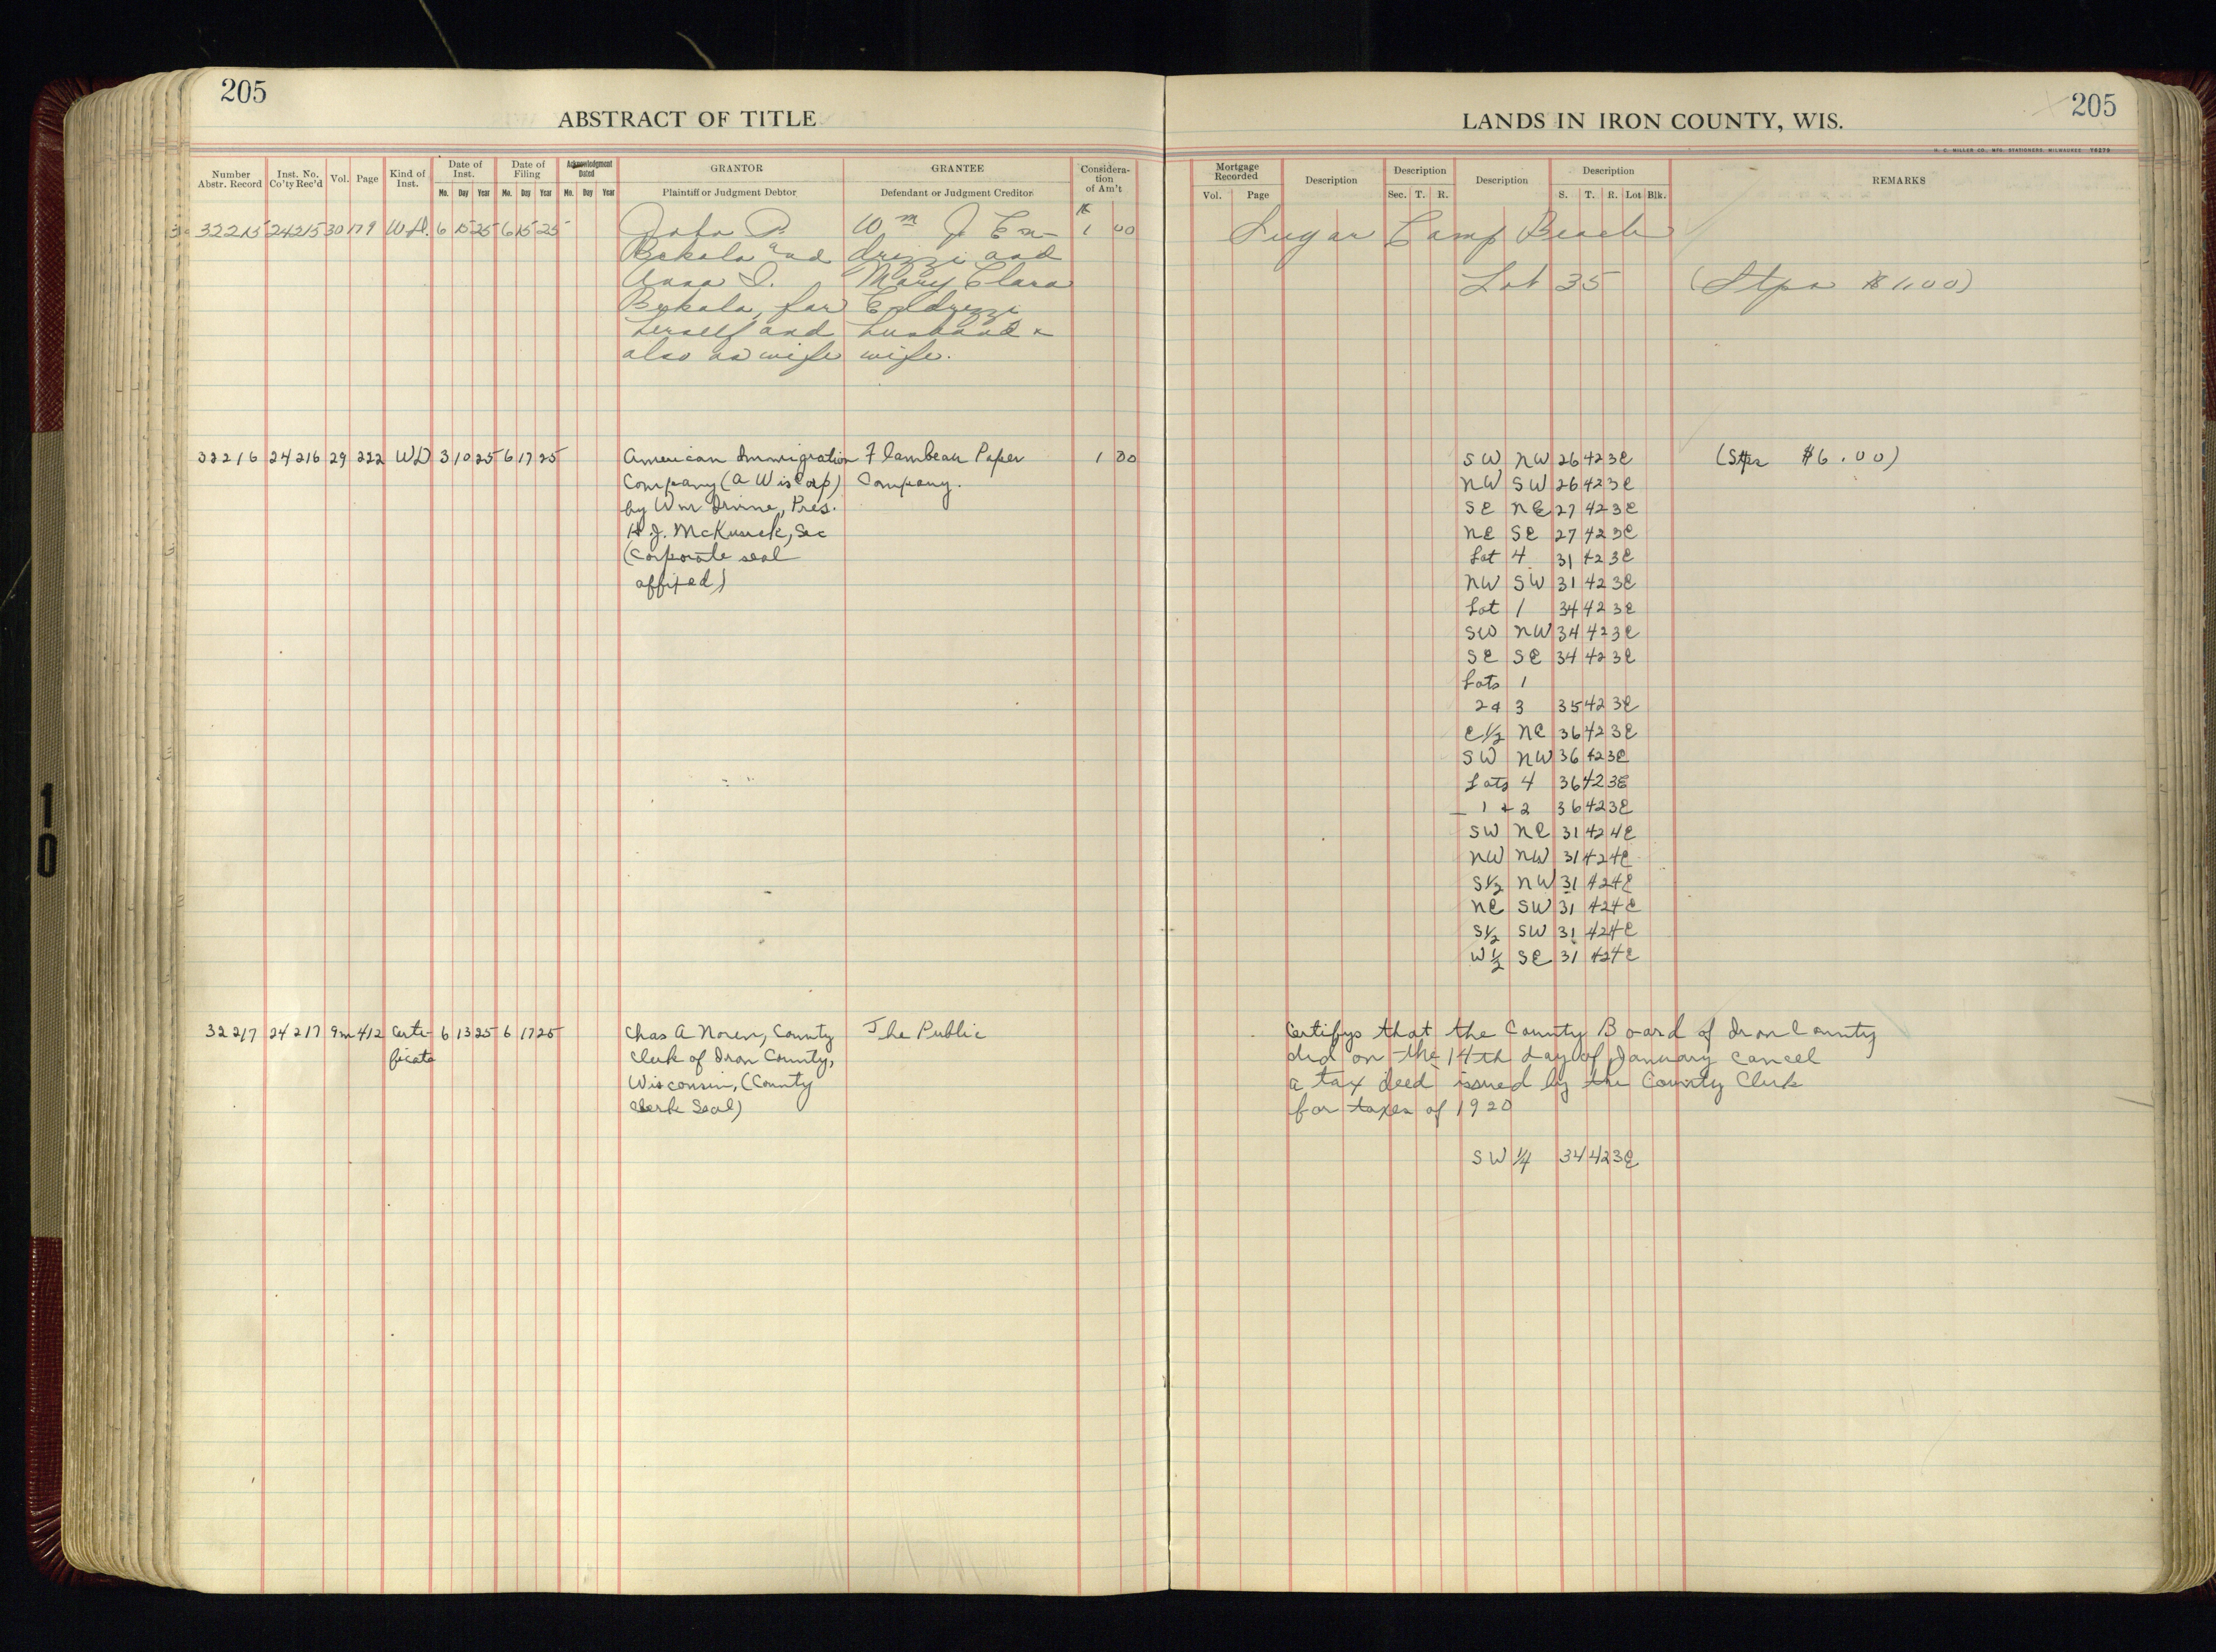 205
ABSTRACT OF TITLE
Number Abstr. Record | Inst. No. Co'ty Rec'd | Vol. | Page | Kind of Inst. | Date of Inst. Mo. Day Year | Date of Filing Mo. Day Year | Acknowledgment Dated Mo. Day Year | GRANTOR Plaintiff or Judgment Debtor | GRANTEE Defendant or Judgment Creditor | Consideration of Am't
32215 24215 30 179 W.D. 6 15 25 6 15 25 John P. Wm J. En- $1 00
Bekala and drizzi and
Anna I. Mary Clara
Bekala, for Endrizzi
herself and husband &
also as wife wife.
32216 24216 29 222 WD 3 10 25 6 17 25 American Immigration Flambeau Paper 1 00
Company (a Wis Corp) Company.
by Wm Irvine, Pres.
H J. McKusick, Sec
(Corporate seal
affixed)
32217 24217 9m 412 Certi- 6 13 25 6 17 25 Chas A Noren, County The Public
ficate Clerk of Iron County,
Wisconsin, (County
Clerk Seal)
10
205
LANDS IN IRON COUNTY, WIS.
H. C. MILLER CO. MFG. STATIONERS MILWAUKEE
Mortgage Recorded Vol. Page | Description | Description Sec. T. R. | Description | Description S. T. R. Lot Blk. | REMARKS
Sugar Camp Beach
Lot 35 (Stps $1.00)
SW NW 26 42 3E (Stps $6.00)
NW SW 26 42 3E
SE NE 27 42 3E
NE SE 27 42 3E
Lot 4 31 42 3E
NW SW 31 42 3E
Lot 1 34 42 3E
SW NW 34 42 3E
SE SE 34 42 3E
Lots 1
2 & 3 35 42 3E
E½ NE 36 42 3E
SW NW 36 42 3E
Lots 4 36 42 3E
1 & 2 36 42 3E
SW NE 31 42 4E
NW NW 31 42 4E
S½ NW 31 42 4E
NE SW 31 42 4E
S½ SW 31 42 4E
W½ SE 31 42 4E
Certifys that the County Board of Iron County
did on the 14th day of January cancel
a tax deed issued by the County Clerk
for taxes of 1920
SW ¼ 34 42 3E